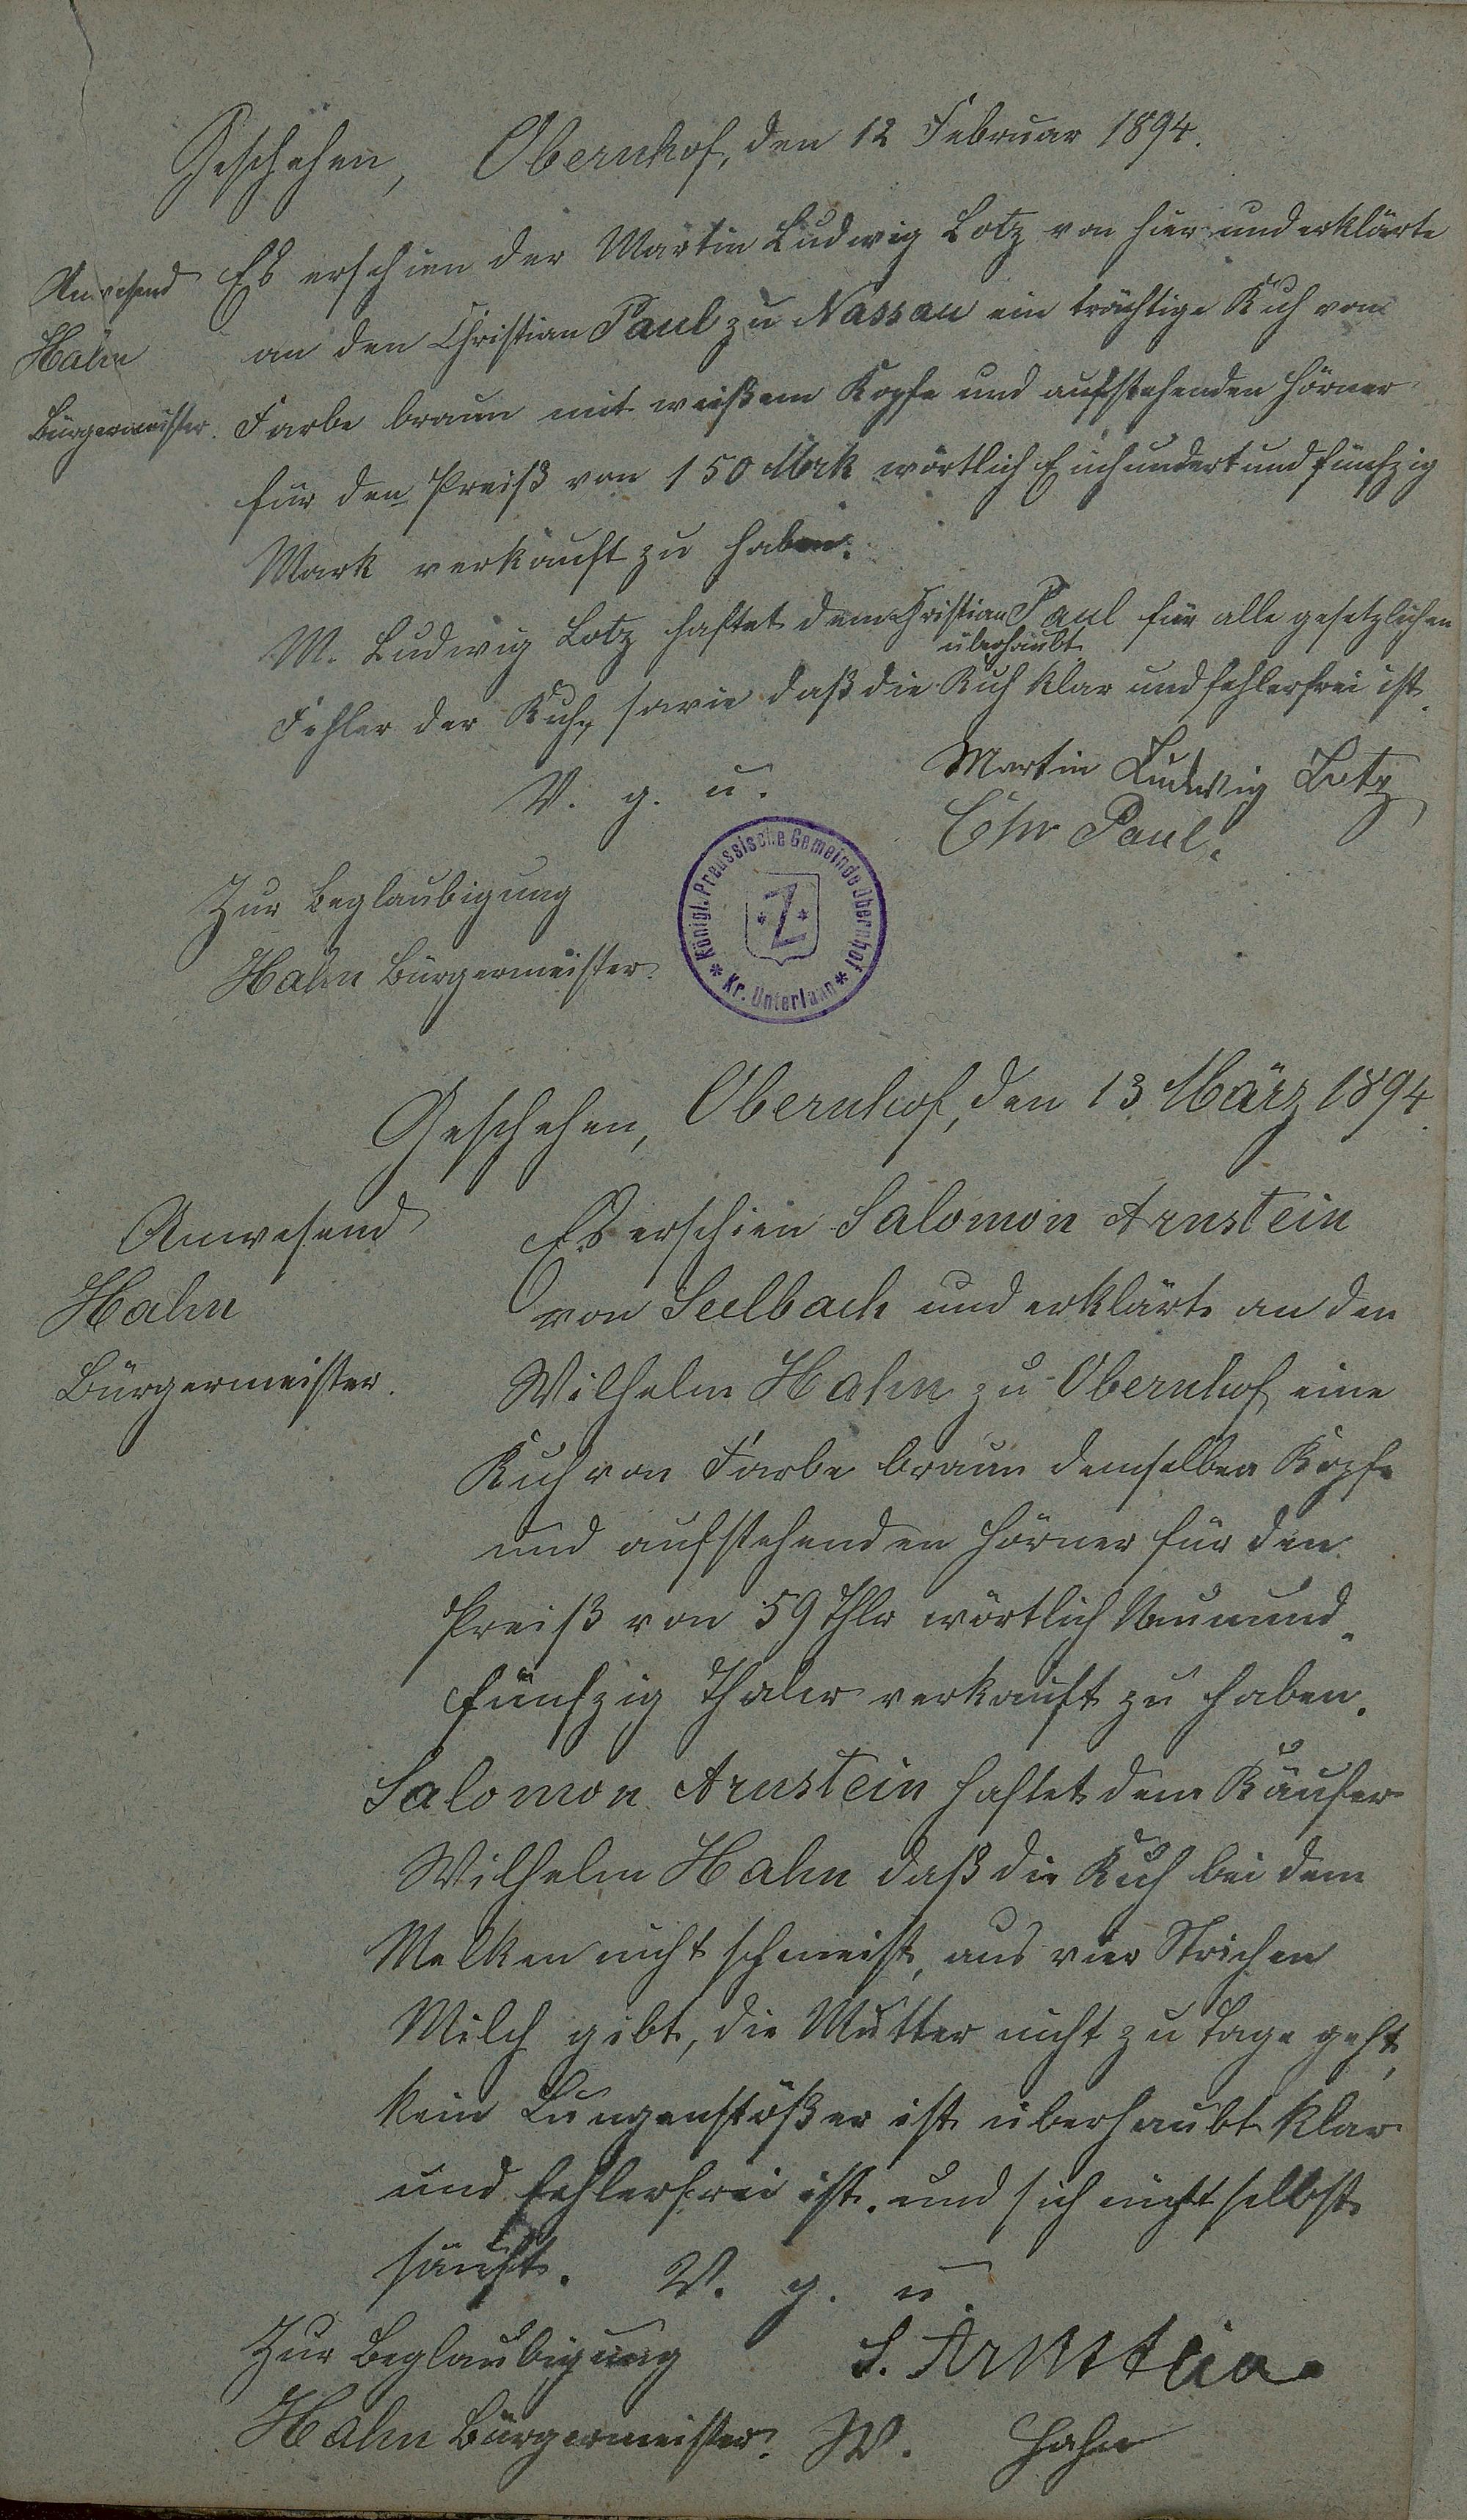 Geschehen, Obernhof, den 12 Februar 1894.
Anwesend
Hahn
Bürgermeister.
Es erschien der Martin Ludwig Lotz von hier und erklärte
an den Christian Paul zu Nassau ein trächtige Kuh von
Farbe braun mit weißem Kopfe und aufstehenden Hörner
für den Preiß von 150 Mrk wörtlich Einhundertundfünfzig
Mark verkauft zu haben.
M. Ludwig Lotz haftet dem Christian Paul für alle gesetzlichen
überhaubt
Fehler der Kuh, sowie daß die Kuh klar und fehlerfrei ist.
V. g. u.
Martin Ludwig Lotz
Chr Paul.
Zur Beglaubigung
Hahn Bürgermeister.
Königl. Preussische Gemeinde Obernhof
* Kr. Unterlahn *
Z
Geschehen, Obernhof, den 13 März 1894.
Anwesend
Hahn
Bürgermeister.
Es erschien Salomon Arnstein
von Seelbach und erklärte an den
Wilhelm Hahn zu Obernhof eine
Kuh von Farbe braun demselben Kopfe
und aufstehenden Hörner für den
Preiß von 59 Thlr wörtlich Neunund-
fünfzig Thaler verkauft zu haben.
Salomon Arnstein haftet dem Käufer
Wilhelm Hahn daß die Kuh bei dem
Melken nicht schmeist, aus vier Strichen
Milch gibt, die Mutter nicht zu Tage geht,
kein Lungenstößer ist überhaubt klar
und fehlerfrei ist. und sich nicht selbst
säuft. V. g. u.
Zur Beglaubigung
S. Arnstein.
Hahn Bürgermeister. W. Hahn